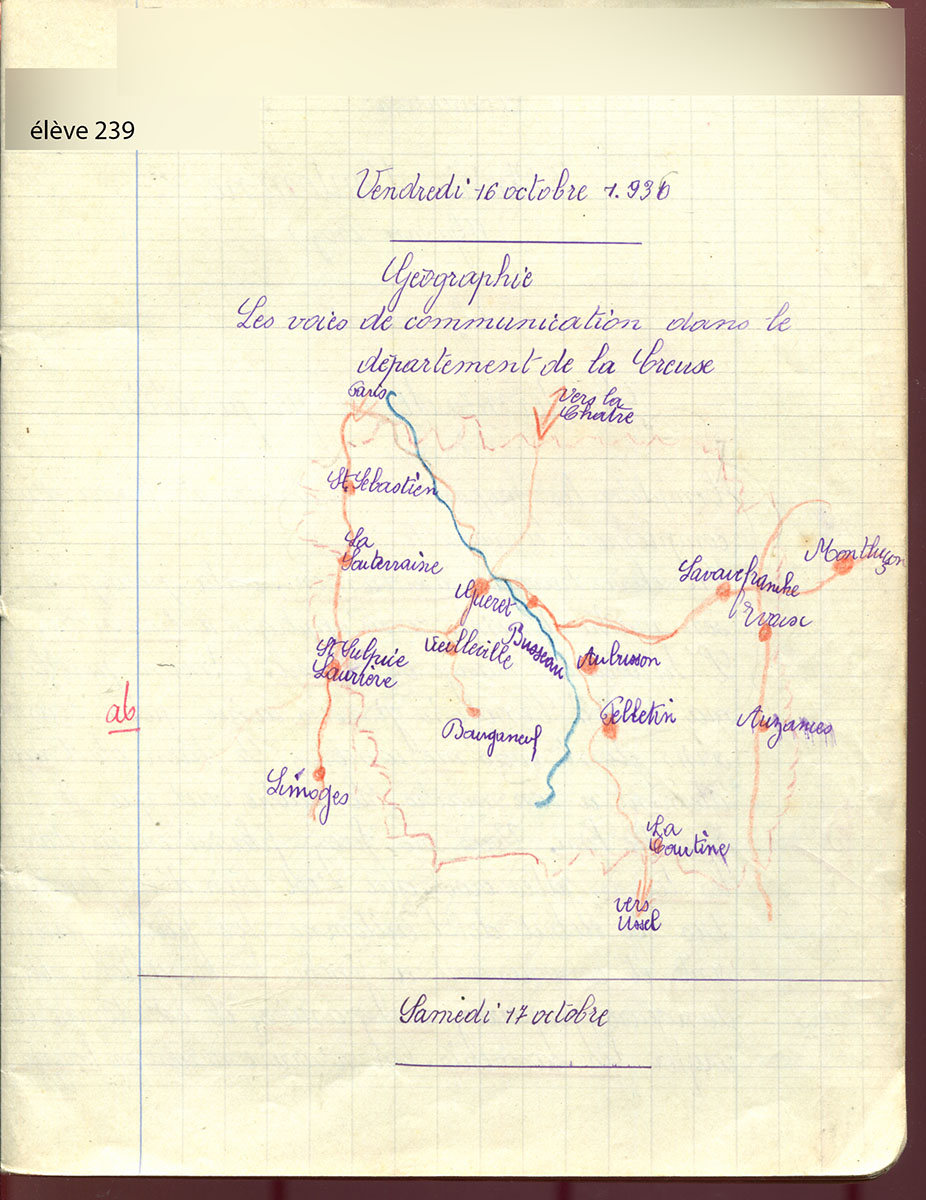 élève 239
Vendredi 16 octobre 1.936
Géographie
Les voies de communication dans le
département de la Creuse
Paris
vers la
Chatre
St Sebastien
La
Souterraine
Montluçon
Lavaufranche
Gueret
Evaux
Busseau
Vieilleville
St Sulpice
Laurière
Aubusson
Felletin
ab
Bourganeuf
Auzances
Limoges
La
Courtine
vers
Ussel
Samedi 17 octobre